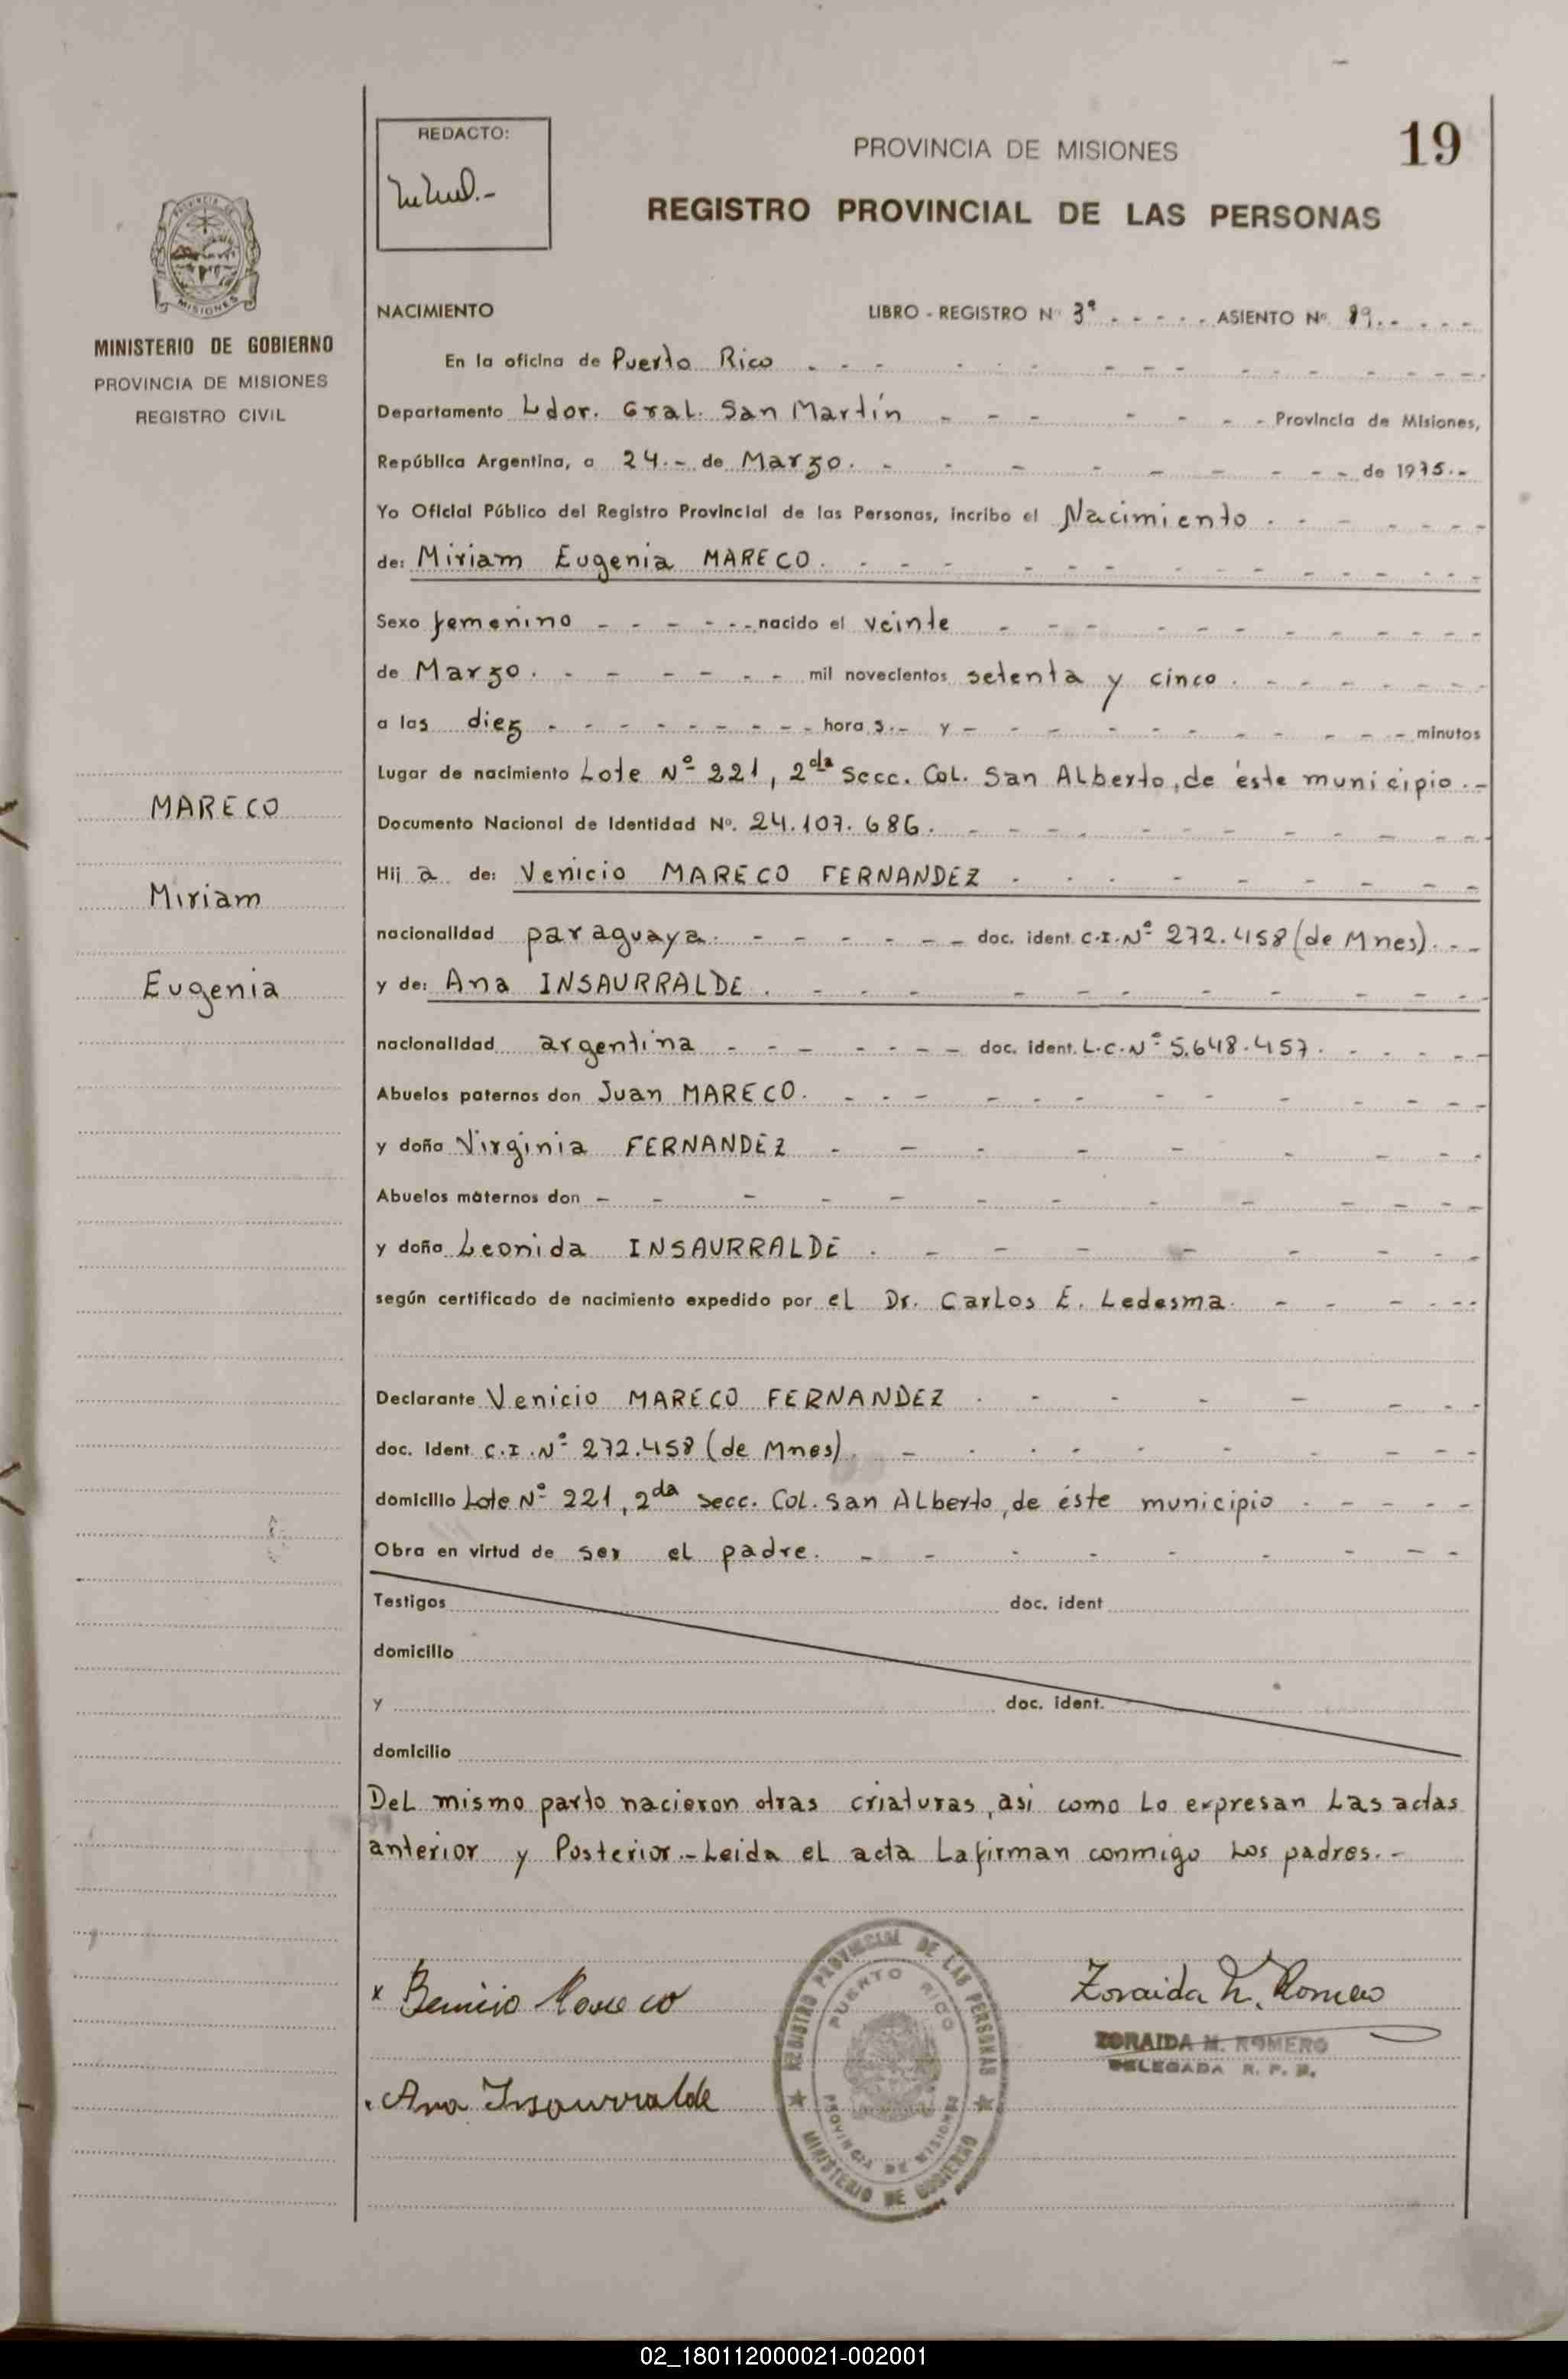 REDACTO:
PROVINCIA DE MISIONES
19
REGISTRO PROVINCIAL DE LAS PERSONAS
PROVINCIA DE
MISIONES
MINISTERIO DE GOBIERNO
PROVINCIA DE MISIONES
REGISTRO CIVIL
NACIMIENTO LIBRO - REGISTRO Nº 3º - - - - - ASIENTO Nº 19. - - - -
En la oficina de Puerto Rico
Departamento Ldor. Gral. San Martín - - - Provincia de Misiones,
República Argentina, a 24.- de Marzo. - - - de 1975.-
Yo Oficial Público del Registro Provincial de las Personas, incribo el Nacimiento
de: Miriam Eugenia MARECO.
Sexo femenino - - - nacido el veinte
de Marzo. - - - mil novecientos setenta y cinco.
a las diez - - - hora s.- y - - - minutos
Lugar de nacimiento Lote Nº 221, 2da Secc. Col. San Alberto, de éste municipio.-
Documento Nacional de Identidad Nº. 24.107.686.
Hij a de: Venicio MARECO FERNANDEZ
nacionalidad paraguaya. - - - doc. ident. C.I.Nº 272.458 (de Mnes).
y de: Ana INSAURRALDE.
nacionalidad argentina - - - doc. ident. L.C.Nº 5.648.457.
Abuelos paternos don Juan MARECO.
y doña Virginia FERNANDEZ
Abuelos maternos don - - -
y doña Leonida INSAURRALDE.
según certificado de nacimiento expedido por el Dr. Carlos E. Ledesma.
Declarante Venicio MARECO FERNANDEZ
doc. Ident. C.I.Nº 272.458 (de Mnes).
domicilio Lote Nº 221, 2da Secc. Col. San Alberto, de éste municipio
Obra en virtud de ser el padre.
Testigos doc. ident
domicilio
y doc. ident.
domicilio
Del mismo parto nacieron otras criaturas, así como lo expresan las actas
anterior y Posterior.- Leida el acta la firman conmigo los padres.-
MARECO
Miriam
Eugenia
x Benicio Mareco
Ana Insaurralde
REGISTRO PROVINCIAL DE LAS PERSONAS
PUERTO RICO
PROVINCIA DE MISIONES
MINISTERIO DE GOBIERNO
Zoraida M. Romero
ZORAIDA M. ROMERO
DELEGADA R. P. P.
02_180112000021-002001